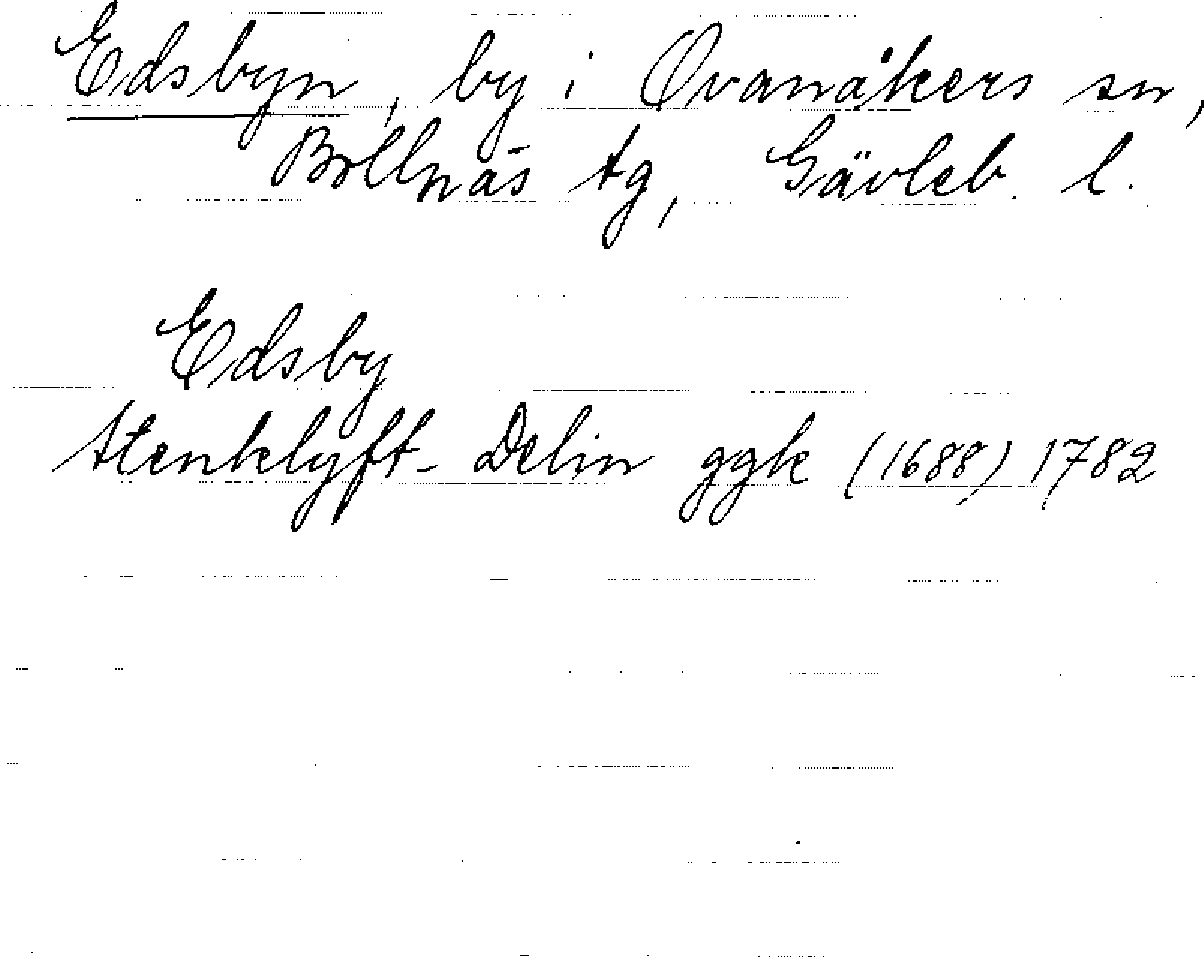 Edsbyn, by i Ovanåkers sn,
Bollnäs tg, Gävleb. l.
Edsby
Stenklyft-Delin ggk (1688) 1782